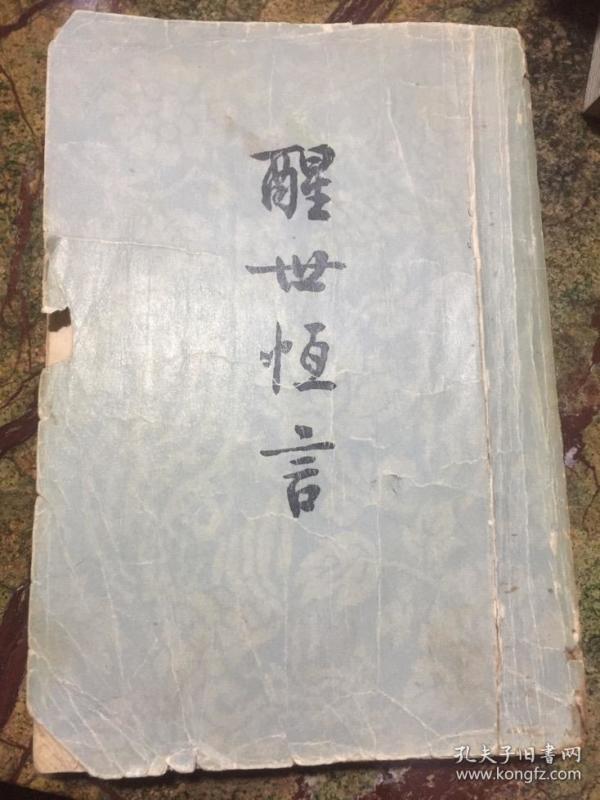 醒世恆言
孔夫子旧書网
www.kongfz.com